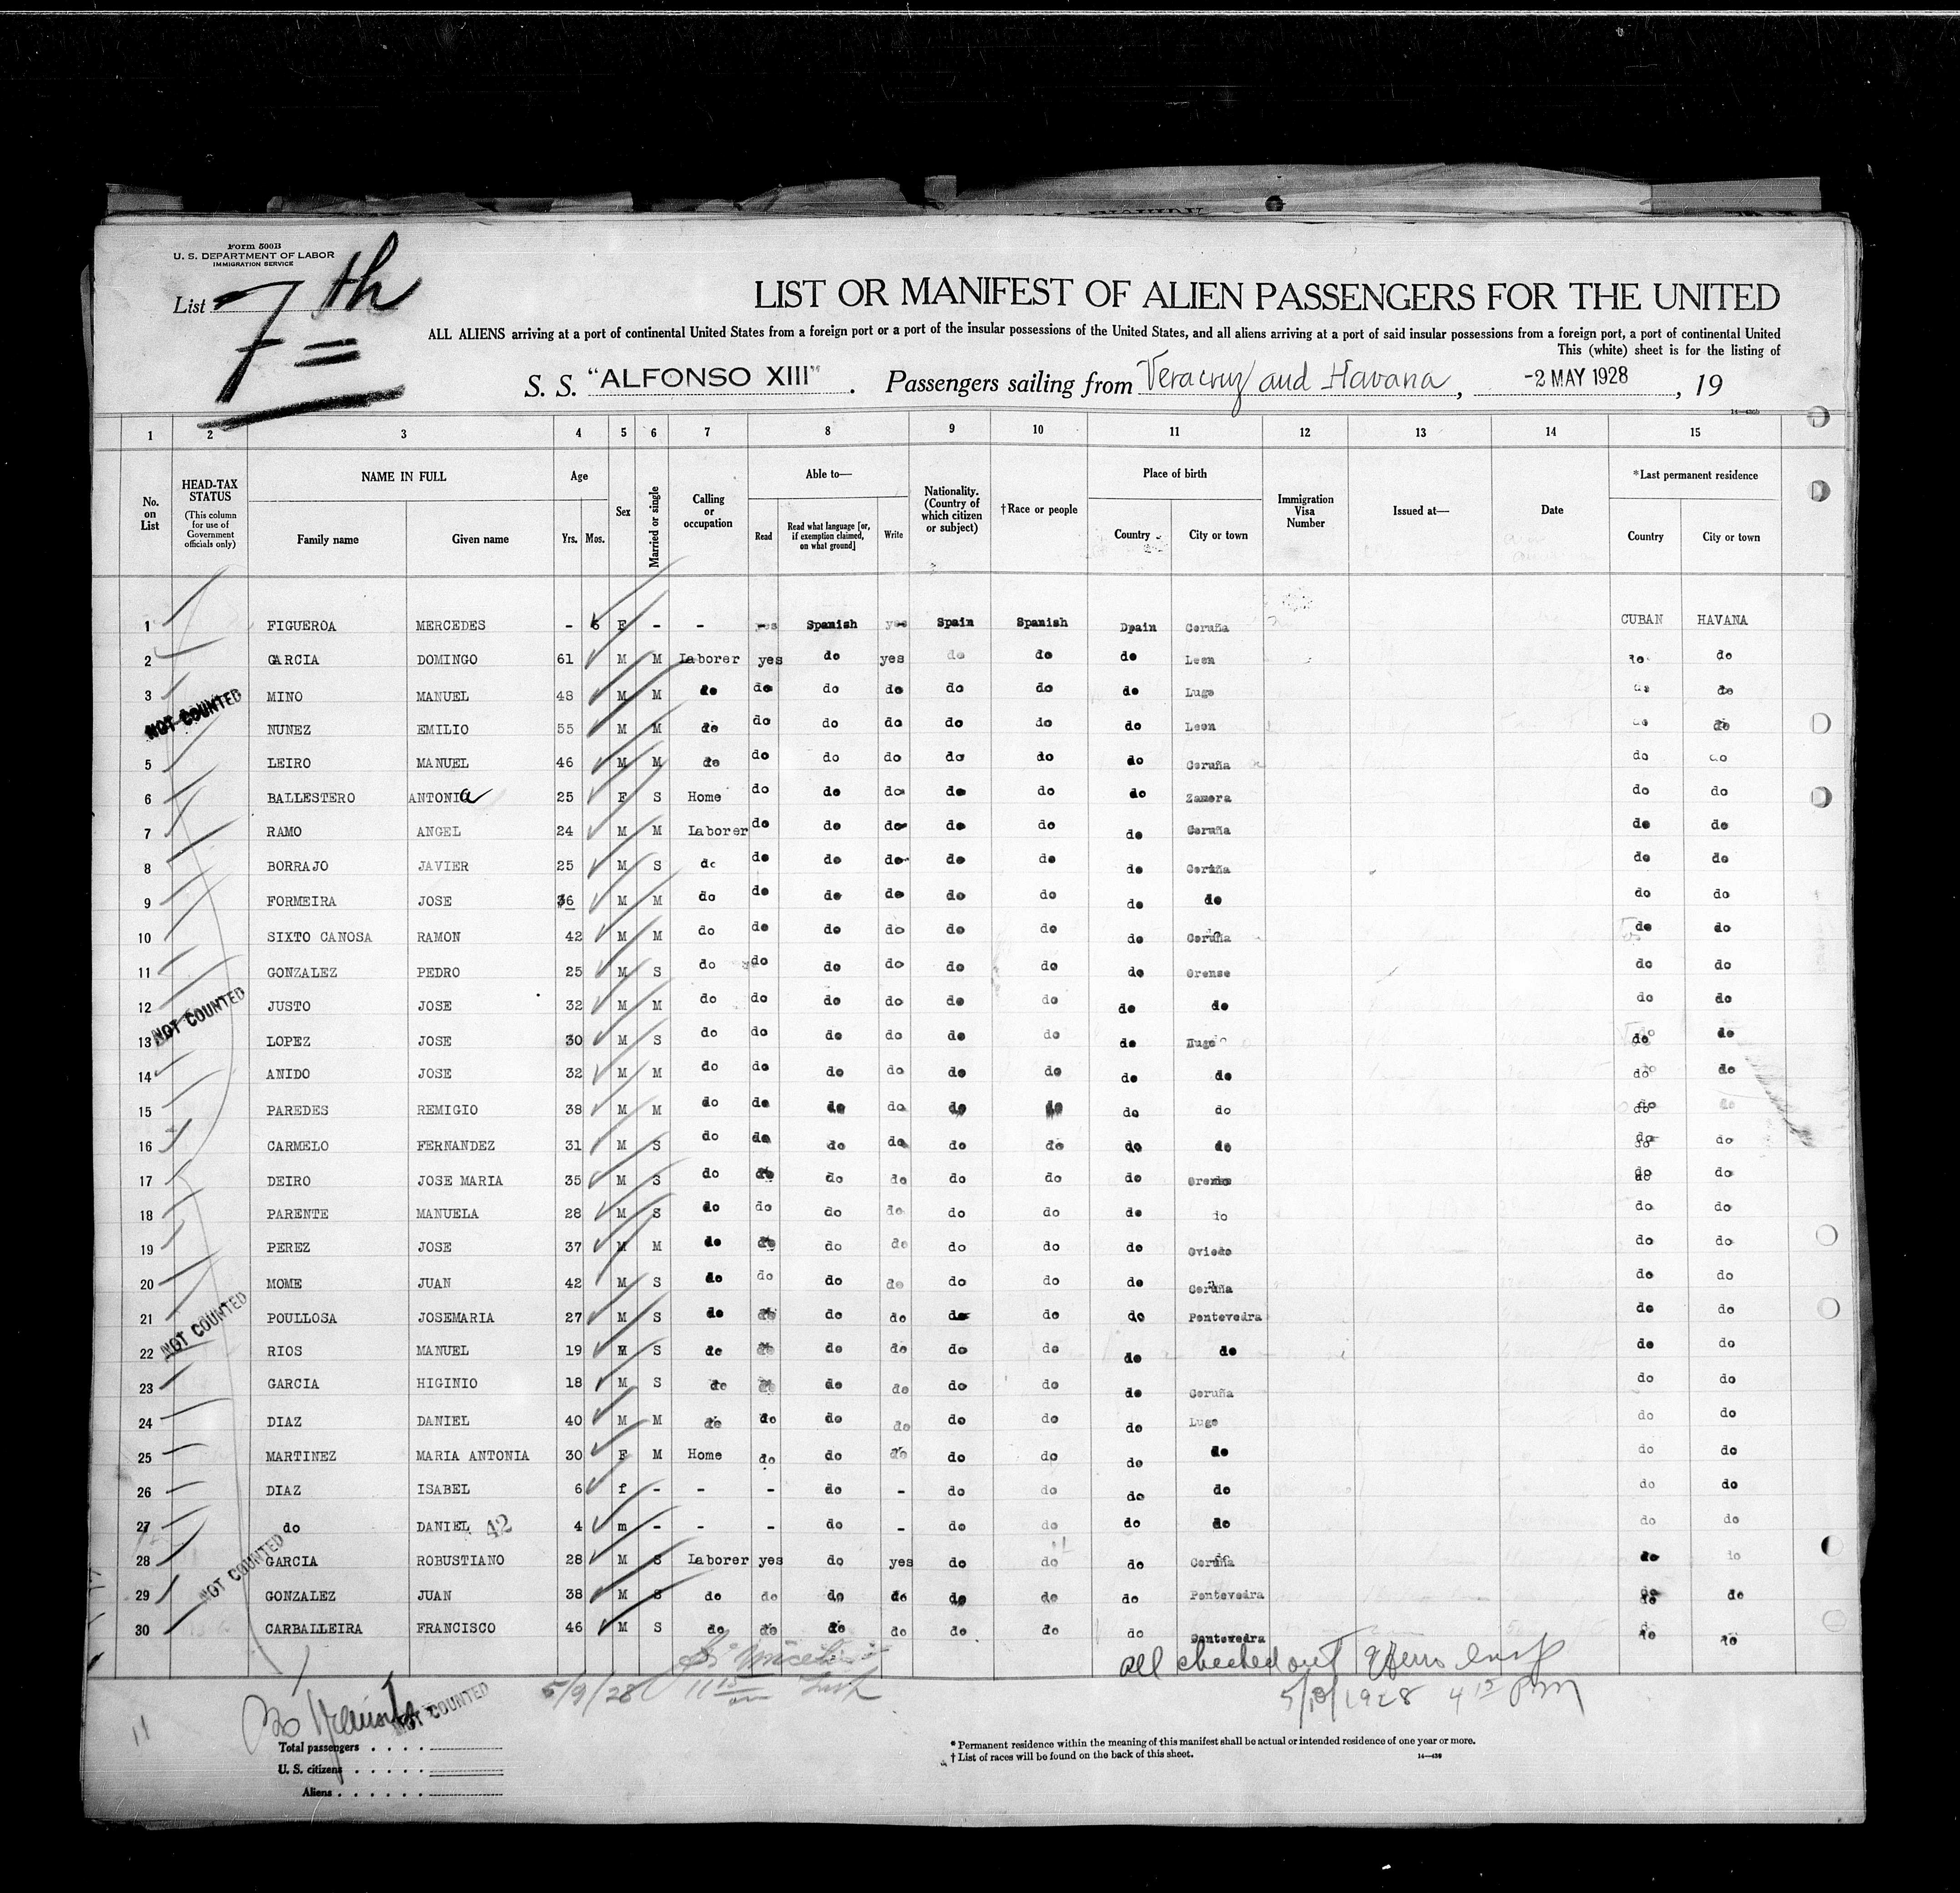 Form 500B
U. S. DEPARTMENT OF LABOR
IMMIGRATION SERVICE
List 7th
LIST OR MANIFEST OF ALIEN PASSENGERS FOR THE UNITED
ALL ALIENS arriving at a port of continental United States from a foreign port or a port of the insular possessions of the United States, and all aliens arriving at a port of said insular possessions from a foreign port, a port of continental United
This (white) sheet is for the listing of
S. S. "ALFONSO XIII". Passengers sailing from Veracruz and Havana, -2 MAY 1928, 19
1 2 3 4 5 6 7 8 9 10 11 12 13 14 15
No. on List
HEAD-TAX STATUS (This column for use of Government officials only)
NAME IN FULL Family name Given name
Age Yrs. Mos.
Sex
Married or single
Calling or occupation
Able to— Read Read what language [or, if exemption claimed, on what ground] Write
Nationality. (Country of which citizen or subject)
†Race or people
Place of birth Country City or town
Immigration Visa Number
Issued at—
Date
*Last permanent residence Country City or town
1 FIGUEROA MERCEDES - 6 F - - yes Spanish yes Spain Spanish Dpain Coruña CUBAN HAVANA
2 GARCIA DOMINGO 61 M M Laborer yes do yes do do do Leon do do
3 MINO MANUEL 48 M M do do do do do do do Lugo do do
NOT COUNTED
NUNEZ EMILIO 55 M M do do do do do do do Leon do do
5 LEIRO MANUEL 46 M M do do do do do do do Coruña do do
6 BALLESTERO ANTONIA 25 F S Home do do do do do do Zamora do do
7 RAMO ANGEL 24 M M Laborer do do do do do do Coruña do do
8 BORRAJO JAVIER 25 M S do do do do do do do Coruña do do
9 FORMEIRA JOSE 36 M M do do do do do do do do do do
10 SIXTO CANOSA RAMON 42 M M do do do do do do do Coruña do do
11 GONZALEZ PEDRO 25 M S do do do do do do do Orense do do
12 JUSTO JOSE 32 M M do do do do do do do do do do
NOT COUNTED
13 LOPEZ JOSE 30 M S do do do do do do do Lugo do do
14 ANIDO JOSE 32 M M do do do do do do do do do do
15 PAREDES REMIGIO 38 M M do do do do do do do do do do
16 CARMELO FERNANDEZ 31 M S do do do do do do do do do do
17 DEIRO JOSE MARIA 35 M S do do do do do do do Orense do do
18 PARENTE MANUELA 28 M S do do do do do do do do do do
19 PEREZ JOSE 37 M M do do do do do do do Oviedo do do
20 MOME JUAN 42 M S do do do do do do do Coruña do do
21 POULLOSA JOSEMARIA 27 M S do do do do do do do Pontevedra do do
NOT COUNTED
22 RIOS MANUEL 19 M S do do do do do do do do do do
23 GARCIA HIGINIO 18 M S do do do do do do do Coruña do do
24 DIAZ DANIEL 40 M M do do do do do do do Lugo do do
25 MARTINEZ MARIA ANTONIA 30 F M Home do do do do do do do do do
26 DIAZ ISABEL 6 f - - - do - do do do do do do
27 do DANIEL 42 4 m - - - do - do do do do do do
28 GARCIA ROBUSTIANO 28 M S Laborer yes do yes do do do Coruña do do
NOT COUNTED
29 GONZALEZ JUAN 38 M S do do do do do do do Pontevedra do do
30 CARBALLEIRA FRANCISCO 46 M S do do do do do do do Pontevedra do do
all checked out
5/9/28 11 15 am
5/10/1928 4 15 PM
11
30
NOT COUNTED
Total passengers . . . .
U. S. citizens . . . . .
Aliens . . . . . .
* Permanent residence within the meaning of this manifest shall be actual or intended residence of one year or more.
† List of races will be found on the back of this sheet.
14—430